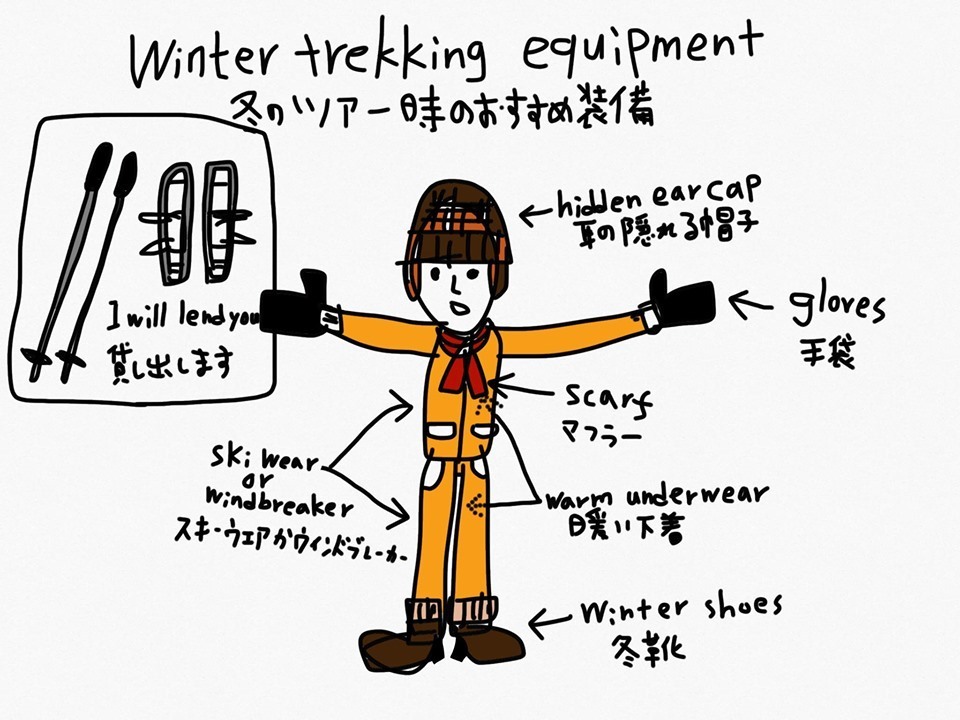 Winter trekking equipment
冬のツアー時のおすすめ装備
I will lend you
貸し出します
hidden ear cap
耳の隠れる帽子
gloves
手袋
scarf
マフラー
ski wear
or
windbreaker
スキーウェアかウィンドブレーカー
warm underwear
暖い下着
Winter shoes
冬靴